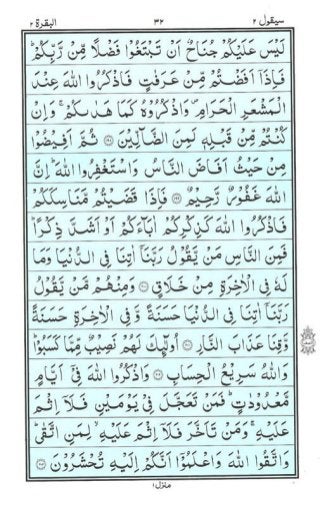 سيقول ٢ ٣٢ البقرة ٢
لَيْسَ عَلَيْكُمْ جُنَاحٌ اَنْ تَبْتَغُوْا فَضْلًا مِّنْ رَّبِّكُمْ ؕ
فَاِذَاۤ اَفَضْتُمْ مِّنْ عَرَفٰتٍ فَاذْكُرُوا اللّٰهَ عِنْدَ
الْمَشْعَرِ الْحَرَامِ ۪ وَاذْكُرُوْهُ كَمَا هَدٰىكُمْ ۚ وَاِنْ
كُنْتُمْ مِّنْ قَبْلِهٖ لَمِنَ الضَّآلِّيْنَ ﴿١٩٨﴾ ثُمَّ اَفِيْضُوْا
مِنْ حَيْثُ اَفَاضَ النَّاسُ وَاسْتَغْفِرُوا اللّٰهَ ؕ اِنَّ
اللّٰهَ غَفُوْرٌ رَّحِيْمٌ ﴿١٩٩﴾ فَاِذَا قَضَيْتُمْ مَّنَاسِكَكُمْ
فَاذْكُرُوا اللّٰهَ كَذِكْرِكُمْ اٰبَآءَكُمْ اَوْ اَشَدَّ ذِكْرًا ؕ
فَمِنَ النَّاسِ مَنْ يَّقُوْلُ رَبَّنَاۤ اٰتِنَا فِى الدُّنْيَا وَمَا
لَهٗ فِى الْاٰخِرَةِ مِنْ خَلَاقٍ ﴿٢٠٠﴾ وَمِنْهُمْ مَّنْ يَّقُوْلُ
رَبَّنَاۤ اٰتِنَا فِى الدُّنْيَا حَسَنَةً وَّفِى الْاٰخِرَةِ حَسَنَةً
وَّقِنَا عَذَابَ النَّارِ ﴿٢٠١﴾ اُولٰٓئِكَ لَهُمْ نَصِيْبٌ مِّمَّا كَسَبُوْا ؕ
وَاللّٰهُ سَرِيْعُ الْحِسَابِ ﴿٢٠٢﴾ وَاذْكُرُوا اللّٰهَ فِىْۤ اَيَّامٍ
مَّعْدُوْدٰتٍ ؕ فَمَنْ تَعَجَّلَ فِىْ يَوْمَيْنِ فَلَاۤ اِثْمَ
عَلَيْهِ ۚ وَمَنْ تَاَخَّرَ فَلَاۤ اِثْمَ عَلَيْهِ ۙ لِمَنِ اتَّقٰى ؕ
وَاتَّقُوا اللّٰهَ وَاعْلَمُوْۤا اَنَّكُمْ اِلَيْهِ تُحْشَرُوْنَ ﴿٢٠٣﴾
منزل ١